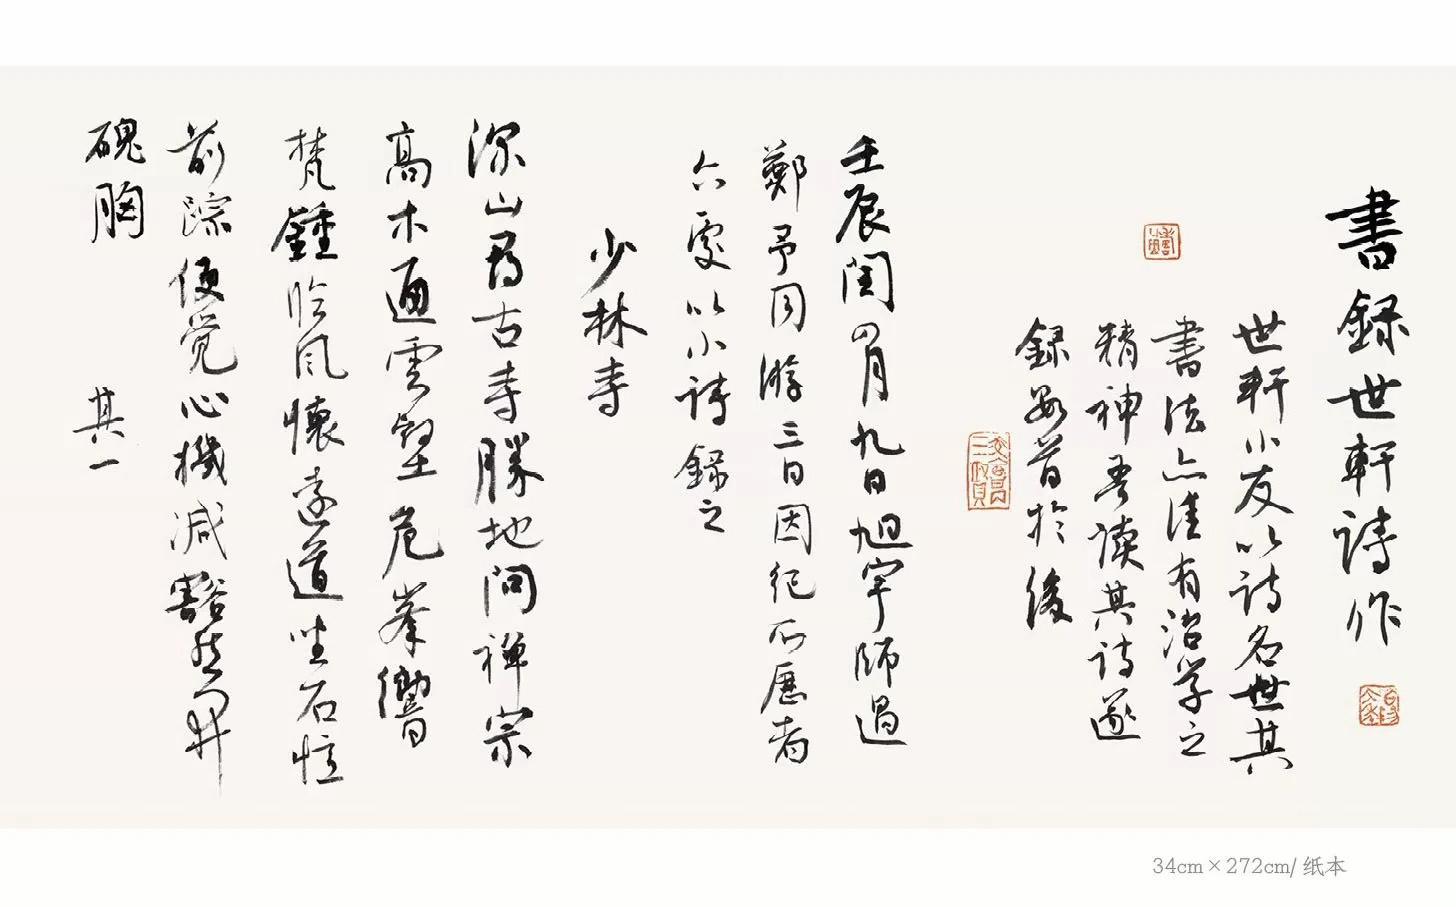 書録世軒詩作
世軒小友以詩名世其
書法亦佳有治学之
精神吾读其詩遂
録若首於後
壬辰閏四月九日旭宇師過
鄭予同游三日因纪所歷者
六處以小詩録之
少林寺
深山尋古寺勝地问禅宗
高木通雲壑危峯響
梵鐘临风懷遠道坐石憶
前踪便觉心機减豁然开
磈胸 其一
34cm×272cm/ 纸本